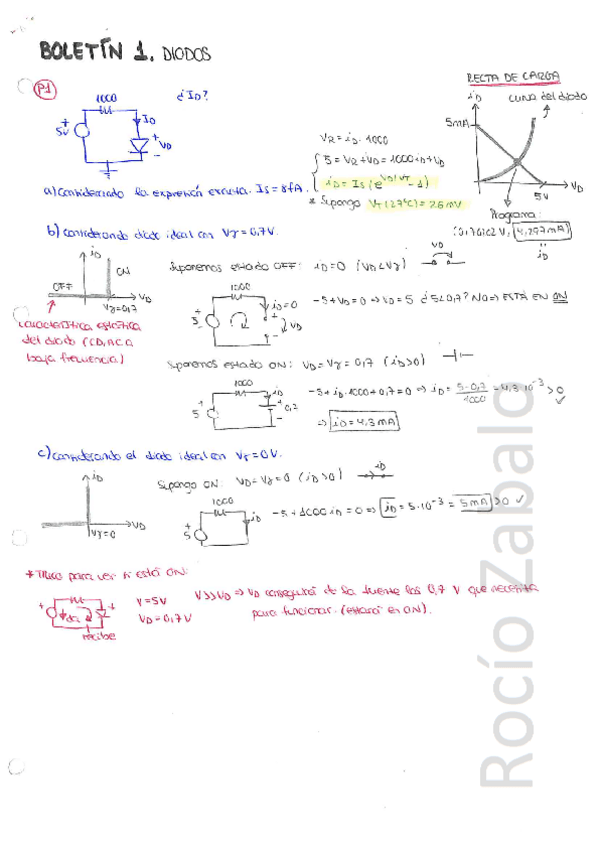 BOLETÍN 1. DIODOS
P1
1000
¿ID?
5V
+
ID
+
VD
-
RECTA DE CARGA
iD
curva del diodo
5mA
5V
VD
VR = iD · 1000
5 = VR + VD = 1000 iD + VD
iD = Is (e^VD/VT - 1)
* Supongo VT (27ºC) = 26 mV
Programa:
4,297mA
iD
a) Considerando la expresión exacta. Is = 8fA.
b) Considerando diodo ideal con Vγ = 0,7V.
iD
ON
OFF
VD
Vγ=0,7
Característica estática
del diodo (CD, AC a
baja frecuencia)
Suponemos estado OFF: iD = 0 (VD < Vγ)
VD
1000
5
iD=0
VD
-5 + VD = 0 ⇒ VD = 5 ¿5 < 0,7? NO ⇒ ESTÁ EN ON
Suponemos estado ON: VD = Vγ = 0,7 (iD > 0)
1000
5
iD
0,7
-5 + iD · 1000 + 0,7 = 0 ⇒ iD = 5-0,7 / 1000 = 4,3 · 10^-3 > 0 ✓
⇒ iD = 4,3 mA
c) Considerando el diodo ideal con Vγ = 0V.
iD
VD
Vγ=0
Supongo ON: VD = Vγ = 0 (iD > 0)
iD
1000
5
iD
-5 + 1000 iD = 0 ⇒ iD = 5 · 10^-3 = 5mA > 0 ✓
* Truco para ver si está ON:
da
recibe
V = 5V
VD = 0,7 V
V >> VD ⇒ VD conseguirá de la fuente los 0,7 V que necesita
para funcionar. (estará en ON).
Rocío Zabalo